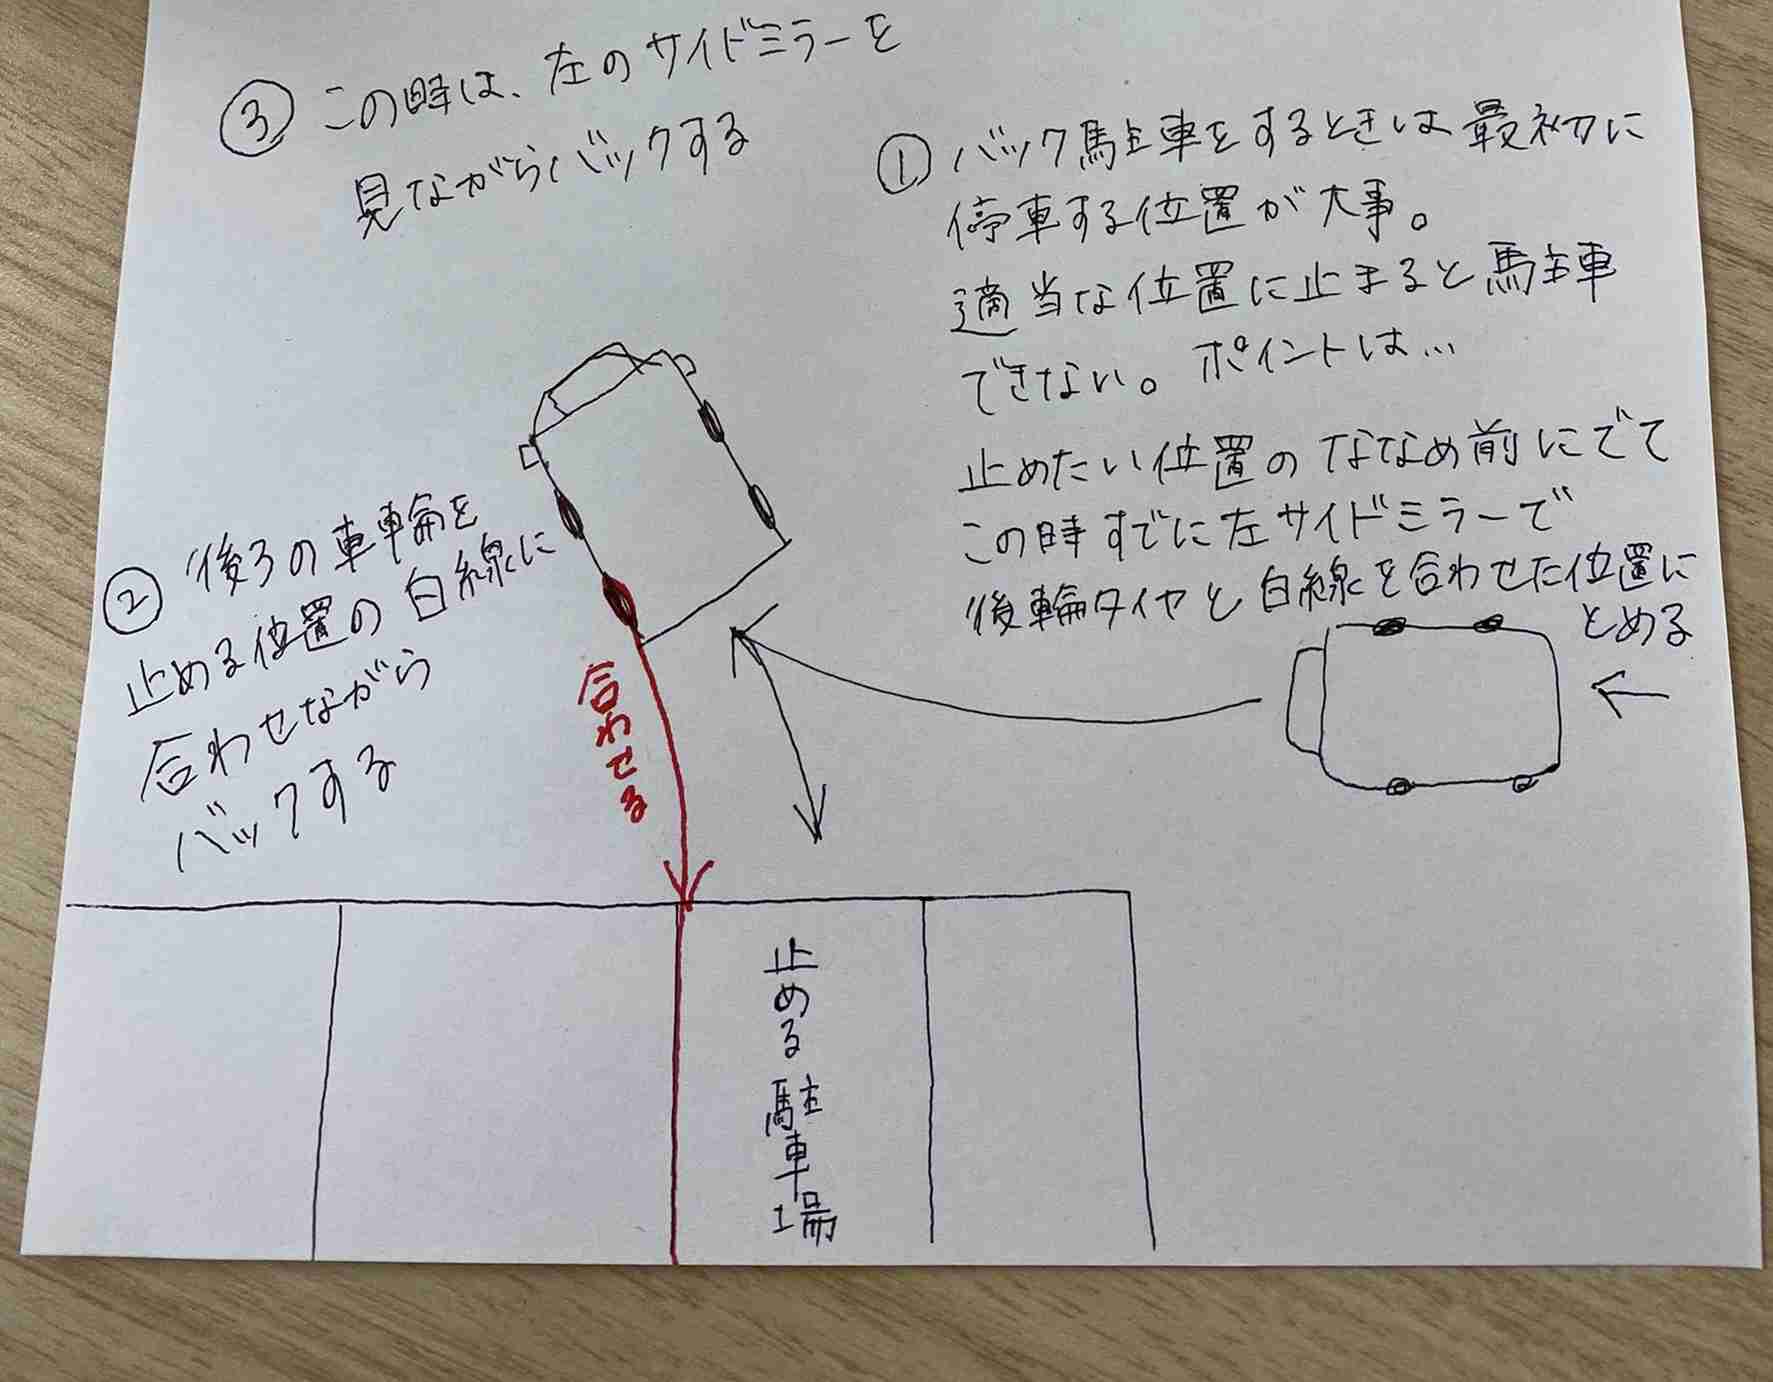 ① バック駐車をするときは最初に
停車する位置が大事。
適当な位置に止まると駐車
できない。ポイントは…
止めたい位置のななめ前にでて
この時すでに左サイドミラーで
後輪タイヤと白線を合わせた位置に
とめる
② 後ろの車輪を
止める位置の白線に
合わせながら
バックする
③ この時は、左のサイドミラーを
見ながらバックする
合わせる
止める駐車場